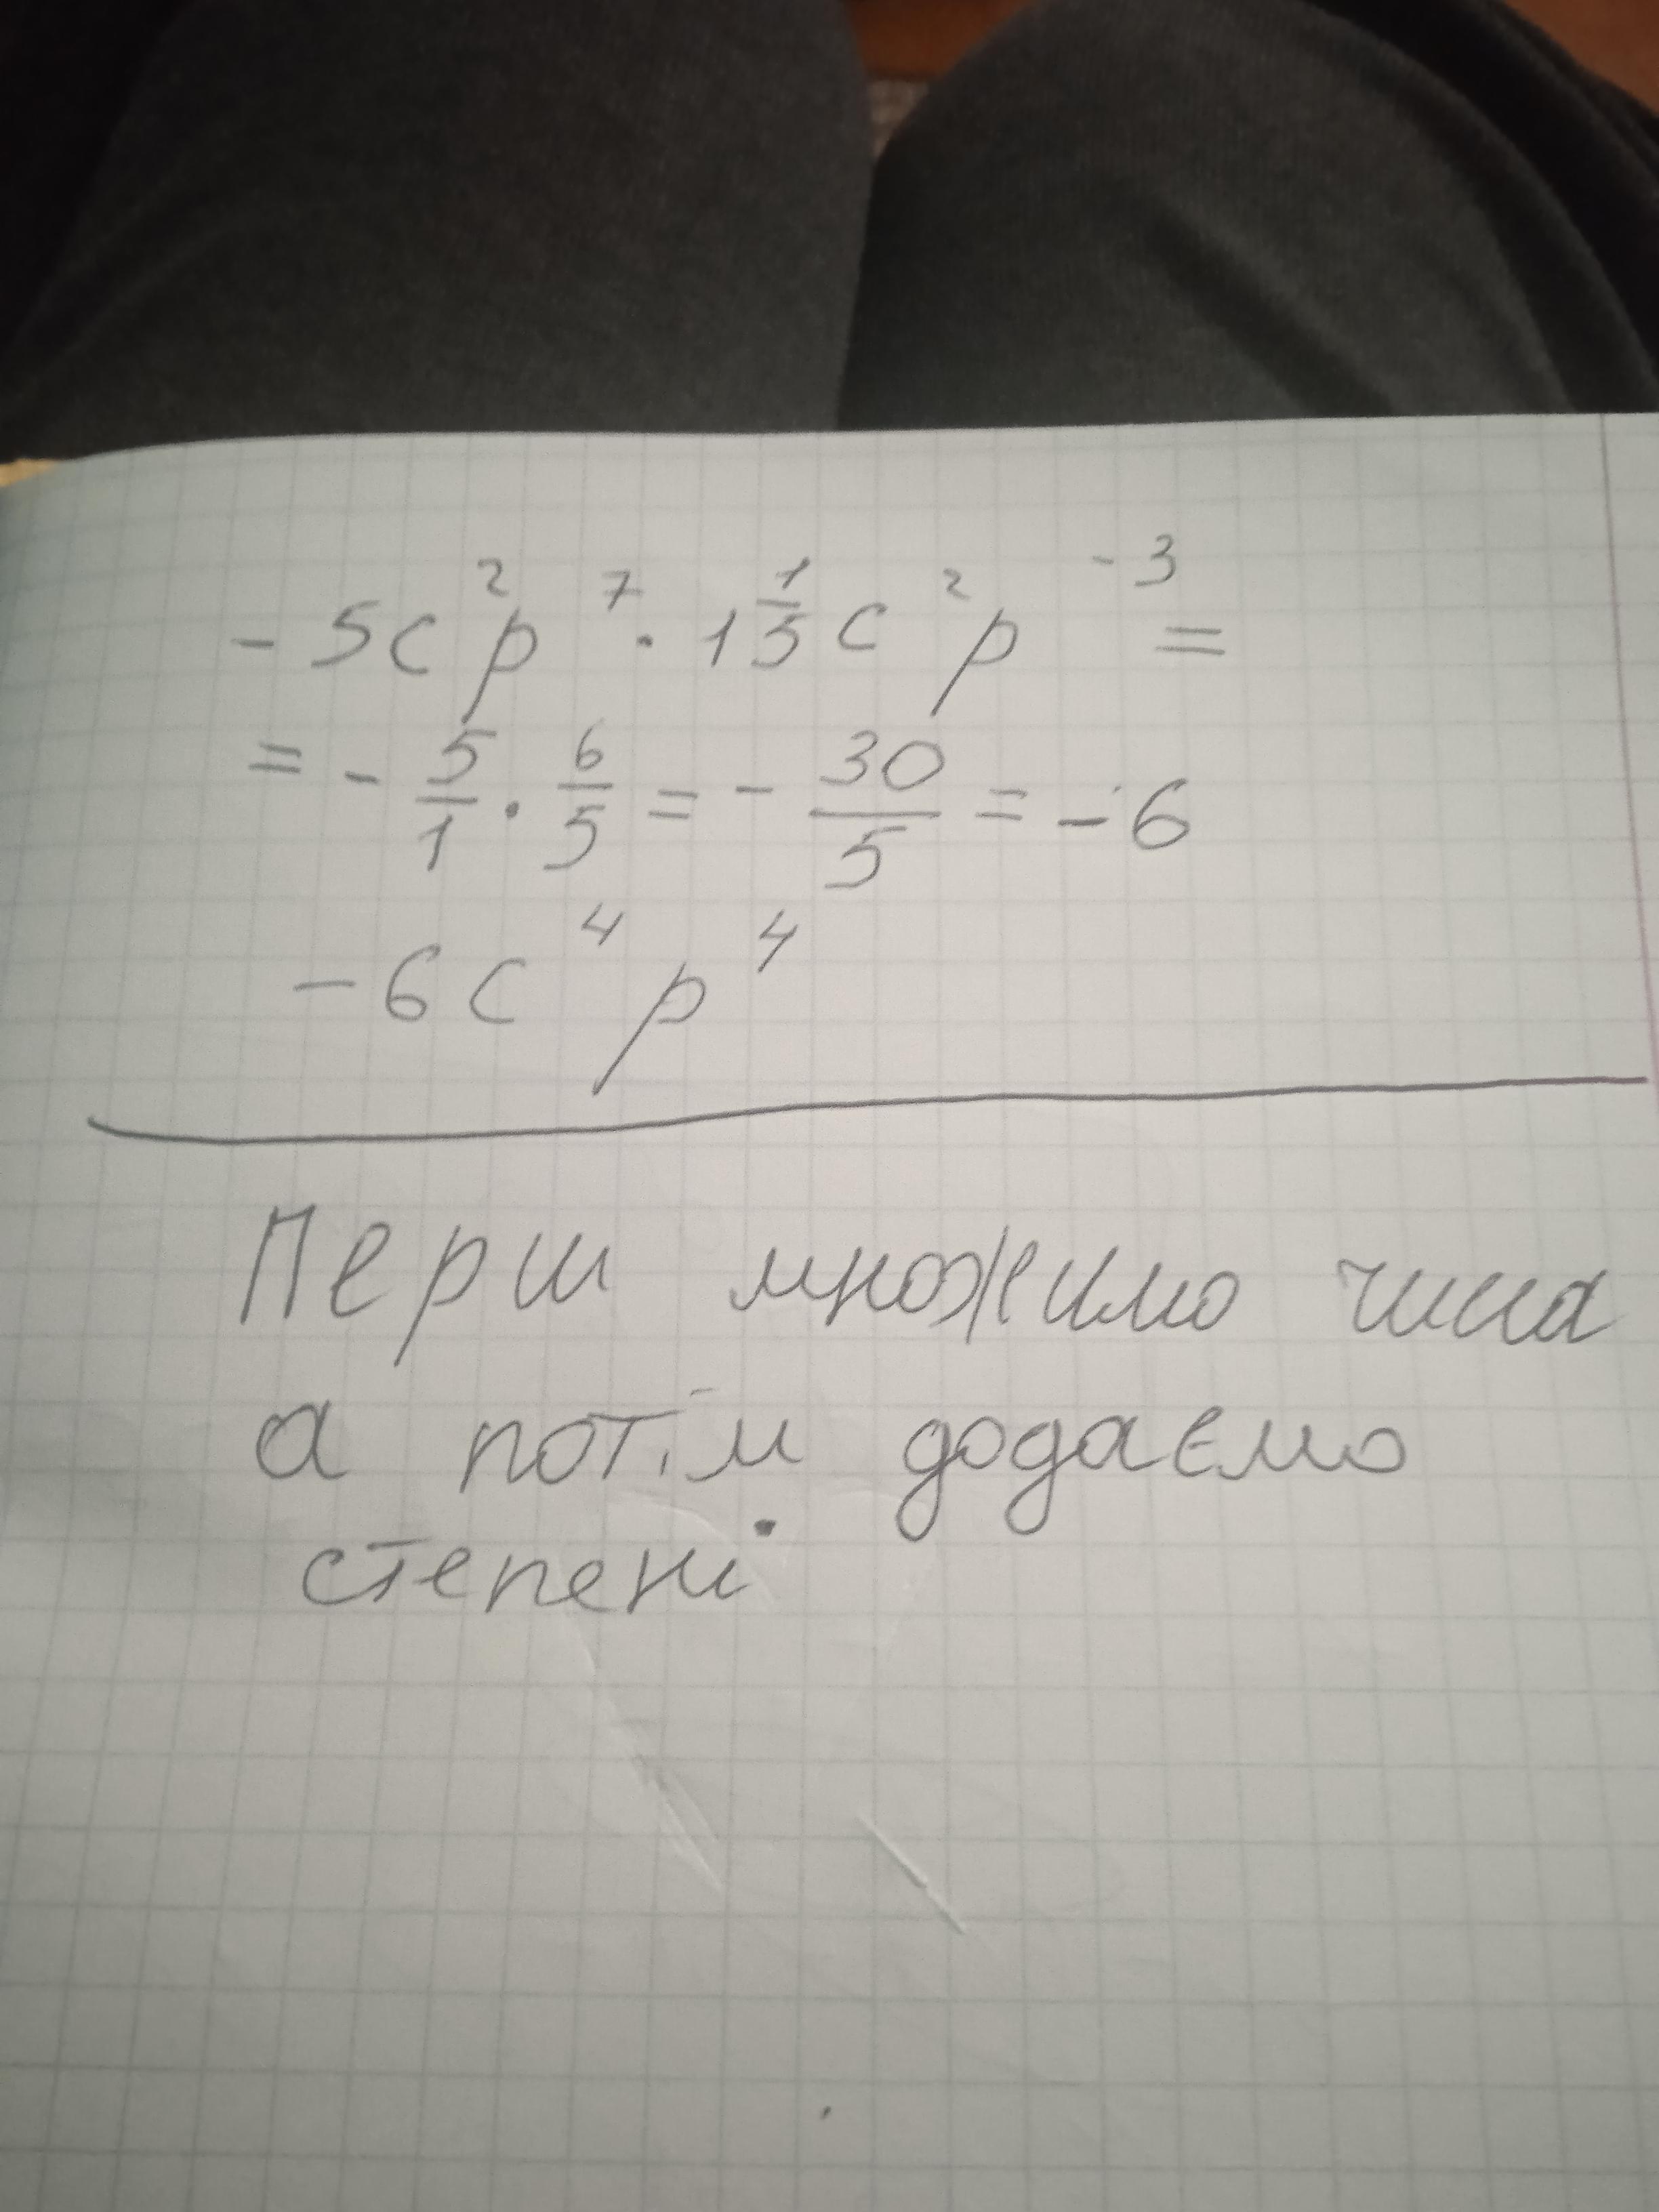 -5c²p⁷ · 1 1/5 c²p⁻³ =
= - 5/1 · 6/5 = - 30/5 = -6
-6c⁴p⁴
Перш множимо числа
а потім додаємо
степені